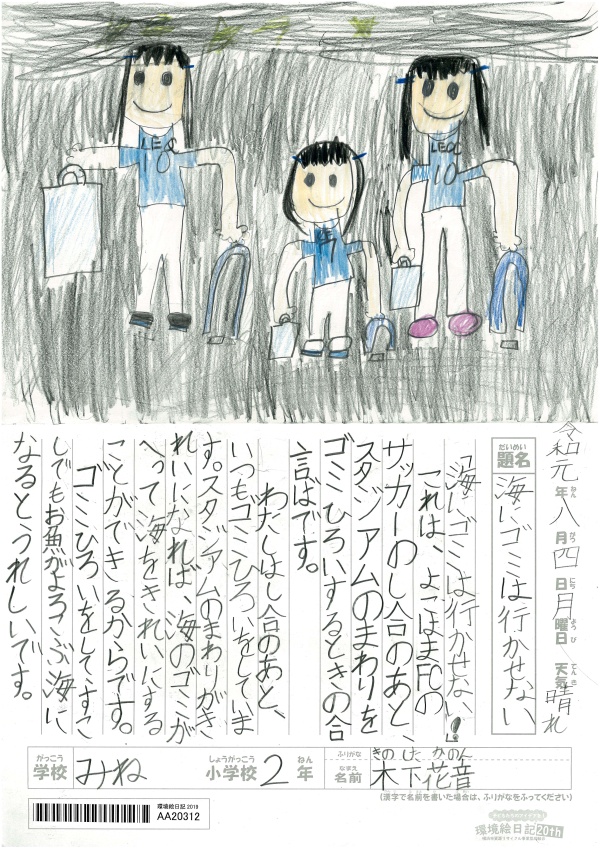 LEOC
18
LEOC
10
7
令和元年八月四日月曜日 天気 晴れ
がつ
にち
ようび
てんき
だいめい
題名
海にゴミは行かせない
「海にゴミは行かせない!」
これは、よこはまFCの
サッカーのし合のあと、
スタジアムのまわりを
ゴミひろいするときの合
言ばです。
わたしはし合のあと、
いつもゴミひろいをしていま
す。スタジアムのまわりがき
れいになれば、海のゴミが
へって海をきれいにする
ことができるからです。
ゴミひろいをしてすこ
しでもお魚がよろこぶ海に
なるとうれしいです。
がっこう しょうがっこう ねん ふりがな きのした かのん
学校 みね 小学校 2 年 なまえ 名前 木下花音
(漢字で名前を書いた場合は、ふりがなをふってください)
環境絵日記 2019
AA20312
環境絵日記20th